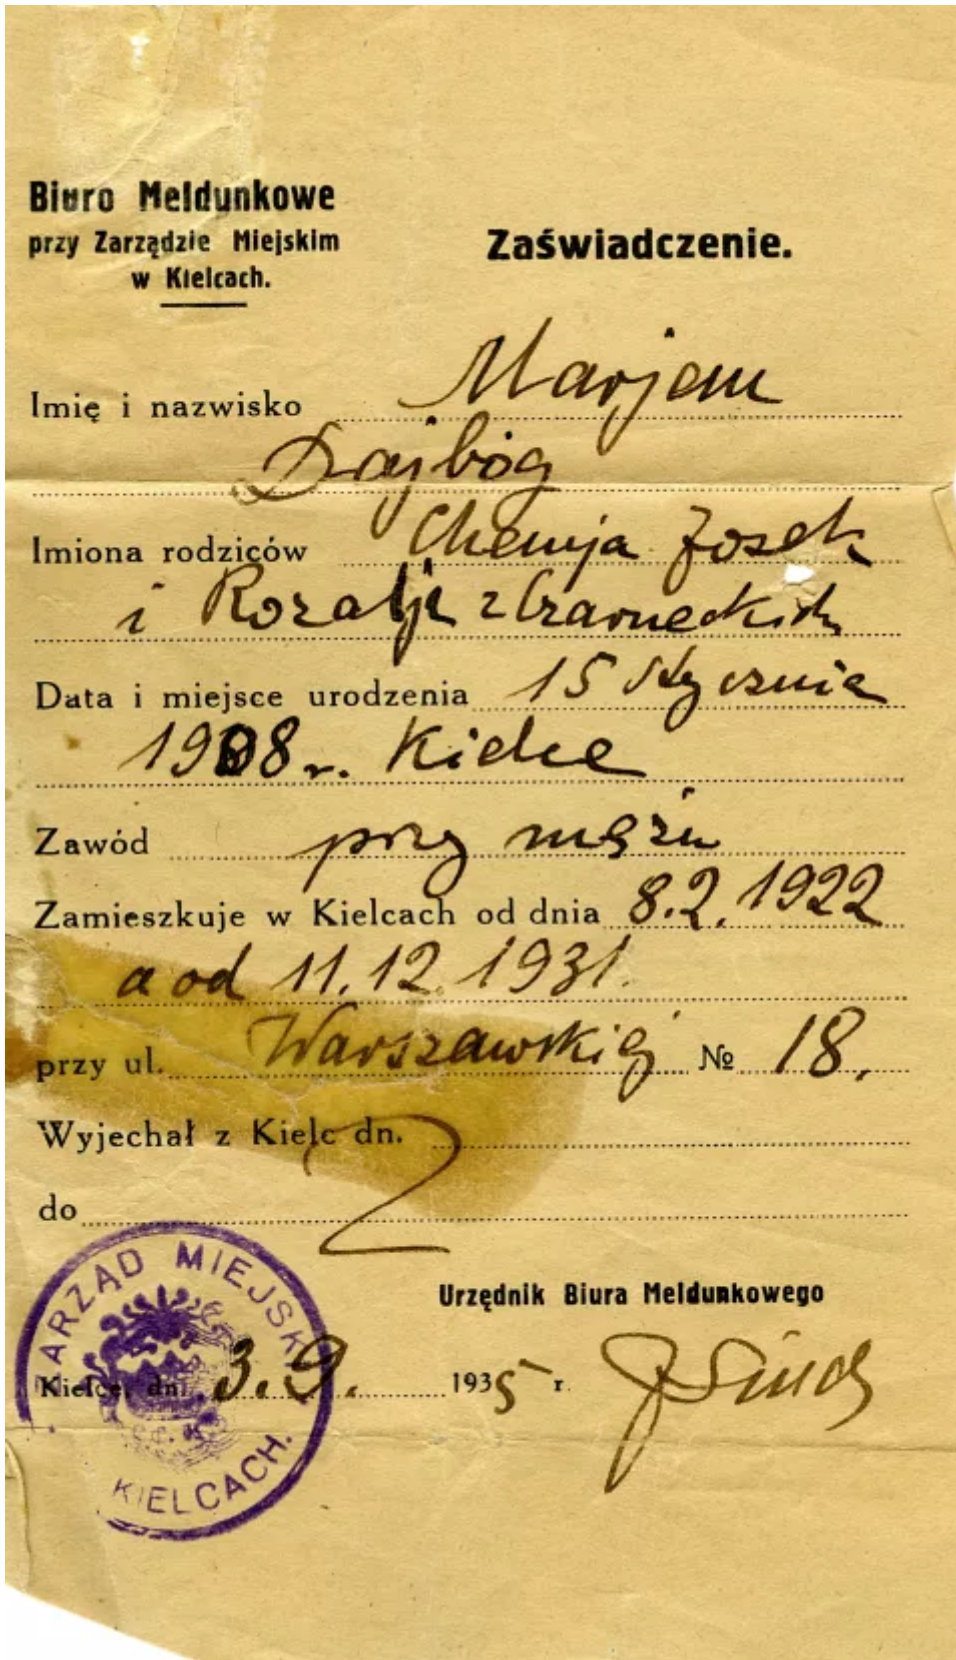 Biuro Meldunkowe
przy Zarządzie Miejskim
w Kielcach.
Zaświadczenie.
Imię i nazwisko Marjem
Dajbóg
Imiona rodziców Chemja Josek
i Rozalji z Czarneckich
Data i miejsce urodzenia 15 stycznia
1908 r. Kielce
Zawód przy mężu
Zamieszkuje w Kielcach od dnia 8.2.1922
a od 11.12.1931.
przy ul. Warszawskiej № 18.
Wyjechał z Kielc dn.
do
ZARZĄD MIEJSKI
Urzędnik Biura Meldunkowego
Kielce, dn. 3.9. 1935 r.
KIELCACH.